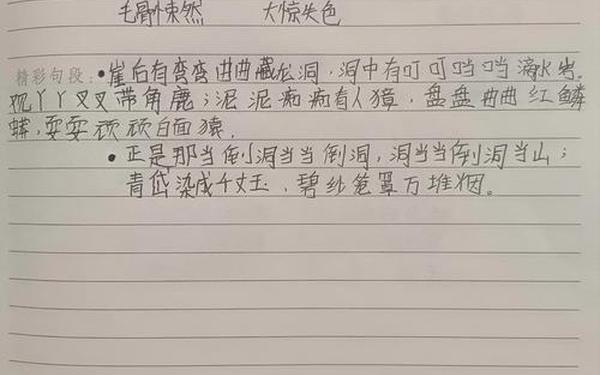 毛骨悚然 大惊失色
精彩句段：•崖后有弯弯曲曲藏龙洞，洞中有叮叮当当滴水岩。
观丫丫叉叉带角鹿；泥泥痴痴看人獐，盘盘曲曲红鳞
蟒，耍耍顽顽白面猿。
•正是那当倒洞当当倒洞，洞当当倒洞当山；
青岱染成千丈玉，碧纱笼罩万堆烟。